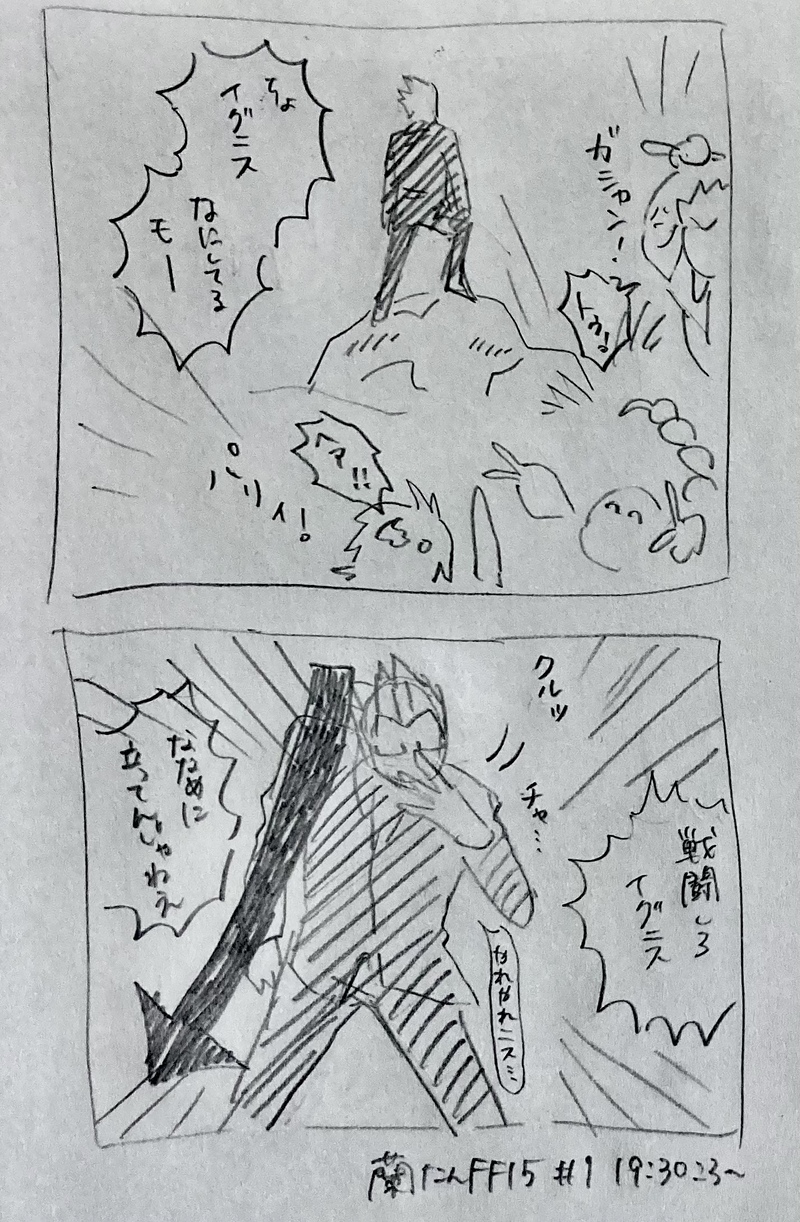 ガシャン!
トゥ!
ちょ
イグニス
なにしてる
モー
ハァ!!
パリィ!
クルッ
チャ…
戦闘しろ
イグニス
やれやれニス…
ななめに
立ってんじゃねえ
蘭たんFF15 #1 19:30ころ~